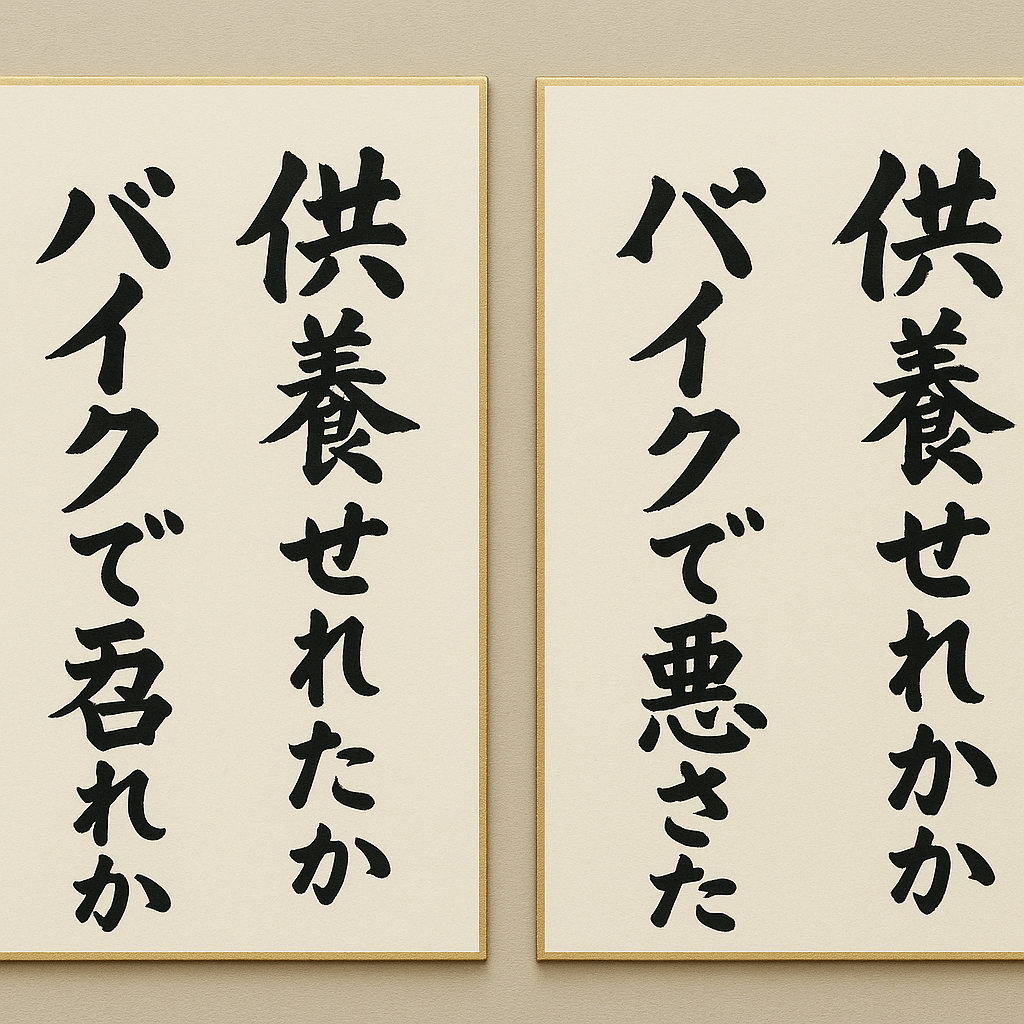 供養せれかか
バイクで悪さた
供養せれたか
バイクで れか